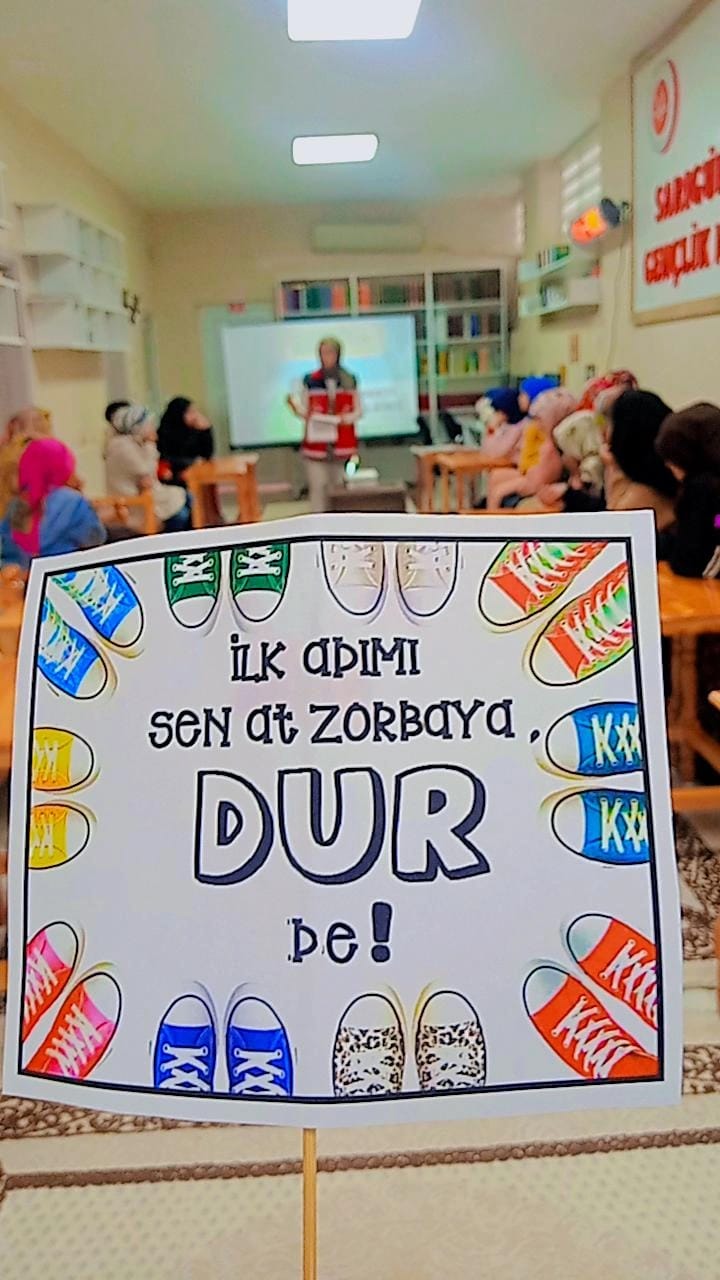 SARIGÜ
GENÇLİK
İLK ADIMI
SEN AT ZORBAYA,
DUR
DE!